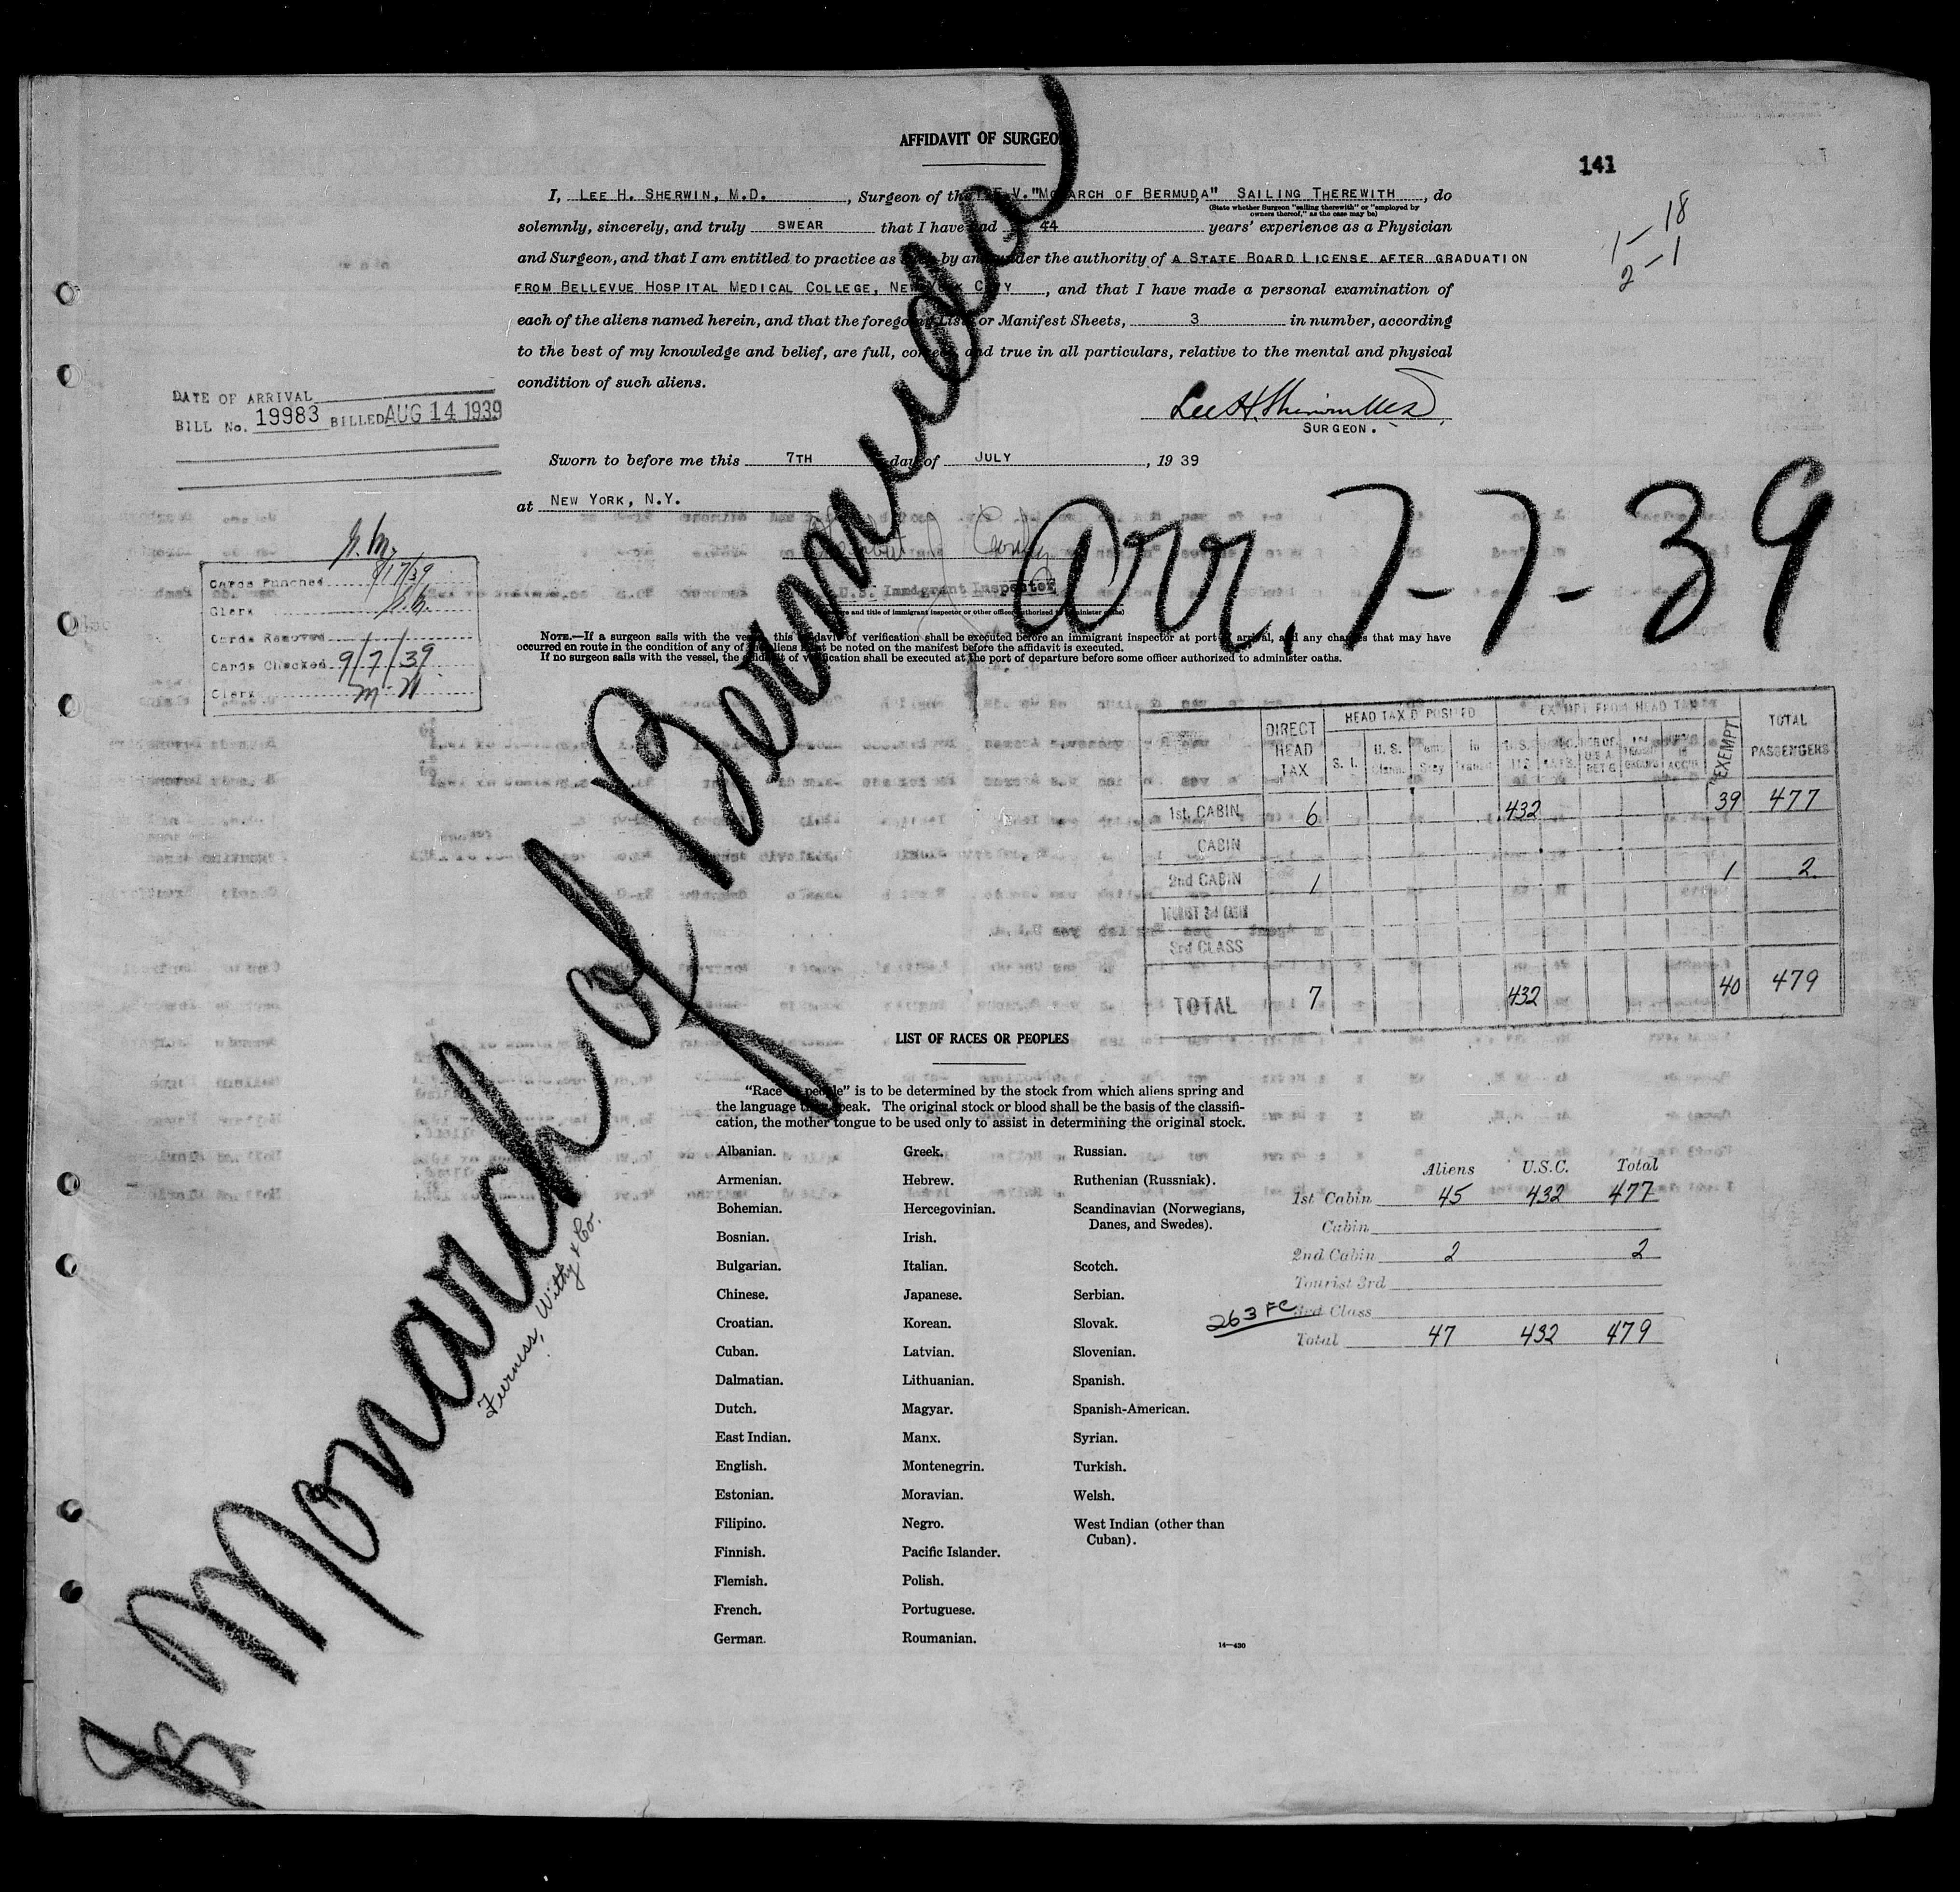 AFFIDAVIT OF SURGEON
141
I, LEE H. SHERWIN, M.D. , Surgeon of the "MONARCH OF BERMUDA", SAILING THEREWITH , do
(State whether Surgeon "sailing therewith" or "employed by owners thereof," as the case may be)
1-18
2-1
solemnly, sincerely, and truly SWEAR that I have had 44 years' experience as a Physician
and Surgeon, and that I am entitled to practice as such by and under the authority of A STATE BOARD LICENSE AFTER GRADUATION
FROM BELLEVUE HOSPITAL MEDICAL COLLEGE, NEW YORK CITY , and that I have made a personal examination of
each of the aliens named herein, and that the foregoing Lists or Manifest Sheets, 3 in number, according
to the best of my knowledge and belief, are full, correct, and true in all particulars, relative to the mental and physical
condition of such aliens.
DATE OF ARRIVAL
BILL No. 19983 BILLED AUG 14 1939
Lee H Sherwin M.D.
SURGEON.
Sworn to before me this 7TH day of JULY , 1939
at NEW YORK, N.Y.
Arr. 7-7-39
U.S. Immigrant Inspector
(Signature and title of immigrant inspector or other officer authorized to administer oaths)
NOTE.—If a surgeon sails with the vessel, this affidavit of verification shall be executed before an immigrant inspector at port of arrival, and any changes that may have
occurred en route in the condition of any of the aliens must be noted on the manifest before the affidavit is executed.
If no surgeon sails with the vessel, the affidavit of verification shall be executed at the port of departure before some officer authorized to administer oaths.
Cards Punched 8/17/39
Clerk
Cards Removed
Cards Checked 9/7/39
Clerk M. W
Monarch of Bermuda
Furness, Withy & Co.
DIRECT HEAD TAX
HEAD TAX DEPOSITED
EXEMPT FROM HEAD TAX
TOTAL PASSENGERS
S. I. U. S. Temp. Stay In Transit U.S. "EXEMPT"
1st. CABIN 6 432 39 477
CABIN
2nd CABIN 1 1 2
TOURIST 3rd CABIN
3rd CLASS
TOTAL 7 432 40 479
LIST OF RACES OR PEOPLES
"Race or people" is to be determined by the stock from which aliens spring and
the language they speak. The original stock or blood shall be the basis of the classifi-
cation, the mother tongue to be used only to assist in determining the original stock.
Albanian.
Armenian.
Bohemian.
Bosnian.
Bulgarian.
Chinese.
Croatian.
Cuban.
Dalmatian.
Dutch.
East Indian.
English.
Estonian.
Filipino.
Finnish.
Flemish.
French.
German.
Greek.
Hebrew.
Hercegovinian.
Irish.
Italian.
Japanese.
Korean.
Latvian.
Lithuanian.
Magyar.
Manx.
Montenegrin.
Moravian.
Negro.
Pacific Islander.
Polish.
Portuguese.
Roumanian.
Russian.
Ruthenian (Russniak).
Scandinavian (Norwegians,
Danes, and Swedes).
Scotch.
Serbian.
Slovak.
Slovenian.
Spanish.
Spanish-American.
Syrian.
Turkish.
Welsh.
West Indian (other than
Cuban).
Aliens U.S.C. Total
1st Cabin 45 432 477
Cabin
2nd Cabin 2 2
Tourist 3rd
263 FC 3rd Class
Total 47 432 479
14—430